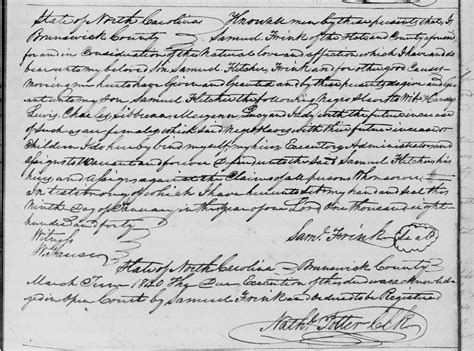 State of North Carolina Know all men by these presents that I
Brunswick County Samuel Frink of the State and County aforesaid
for and in Consideration of the Natural love and affection which I have and do
bear unto my beloved Son Samuel Kitcher Frink and for other good Causes
Moving me hereunto have Given and Granted and by these presents do give and
unto my Son Samuel Kitcher the following Negro Slaves to Wit
Lewis Charles and Judy with the future increase
of Such as are female which said Negro Slaves with their future increase
Children I do hereby bind myself my heirs Executors Administrators and
assigns to Warrant and forever defend unto the said Samuel Kitcher his
heirs and assigns against the Claims of all persons Whomsoever
In testimony of which I have hereunto Set my hand and Seal this
Ninth day of in the year of our Lord One thousand eight
hundred and forty
Witness Saml. Frink Seal
State of North Carolina Brunswick County
March Term 1840 The Due Execution of the
in Open Court by Samuel Frink and Ordered to be Registered
Nathl. Potter Clk